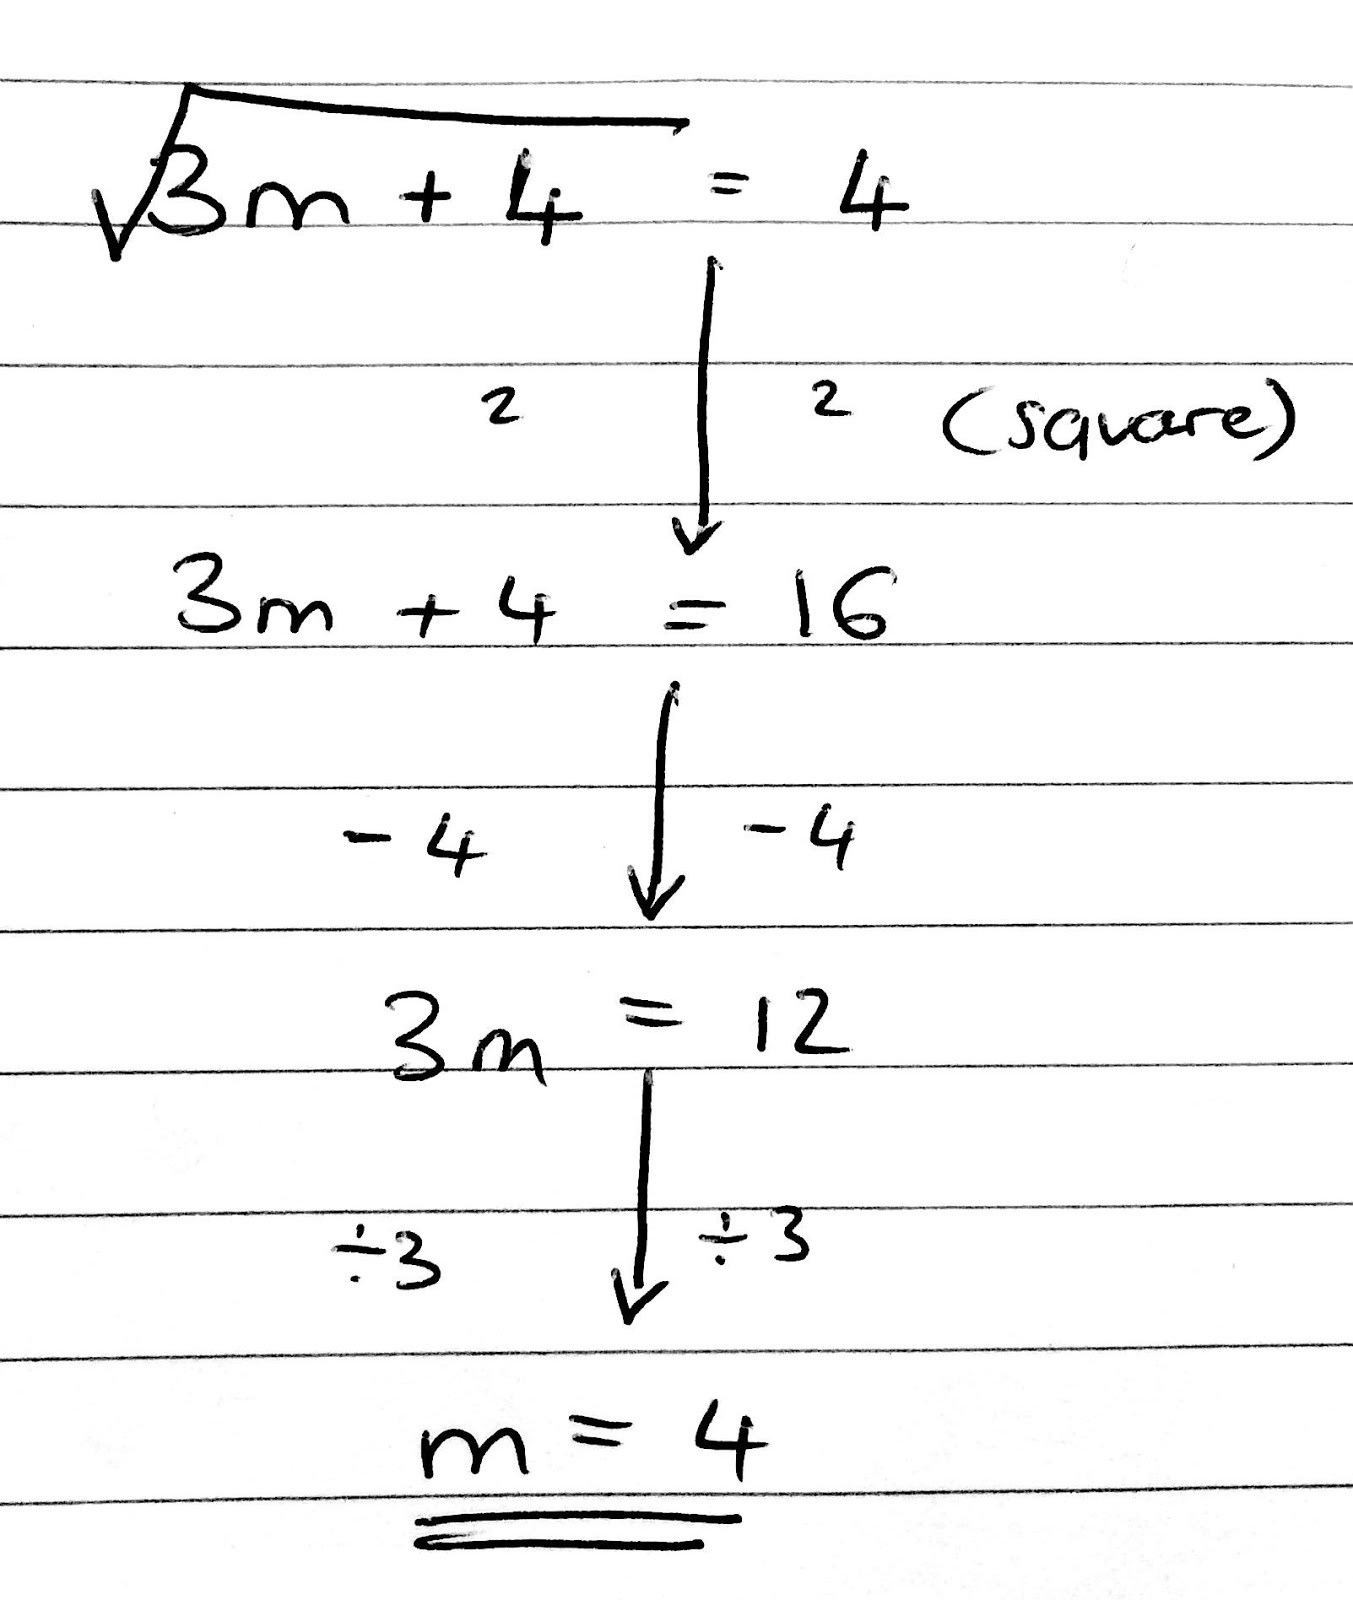 √3m + 4 = 4
2 2 (square)
3m + 4 = 16
- 4 - 4
3m = 12
÷3 ÷3
m = 4